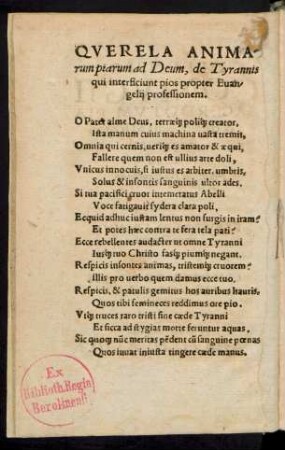 QVERELA ANIMA-
rum piarum ad Deum, de Tyrannis
qui interficiunt pios propter Euan-
gelij professionem.
O Pater alme Deus, terræq́; poliq́; creator,
Ista manum cuius machina uasta tremit,
Omnia qui cernis, ueriq́; es amator & æqui,
Fallere quem non est ullius arte doli,
Vnicus innocuis, si iustus es arbiter, umbris,
Solus & insontis sanguinis ultor ades.
Si tua pacifici cruor intemeratus Abelli
Voce fatigauit sydera clara poli,
Ecquid adhuc iustam lentus non surgis in iram?
Et potes hæc contra te fera tela pati?
Ecce rebellentes audacter ut omne Tyranni
Iusq́; tuo Christo fasq́; piumq́; negant.
Respicis insontes animas, tristemq́; cruorem?
Illis pro uerbo quem damus ecce tuo.
Respicis, & patulis gemitus hos auribus hauris,
Quos tibi semineces reddimus ore pio.
Vtq́; truces raro tristi sine cæde Tyranni
Et sicca ad stygias morte feruntur aquas,
Sic quoq́; nūc meritas pēdent cū sanguine pœnas
Quos iuuat iniusta tingere cæde manus.
Ex
Biblioth. Regia
Berolinensi